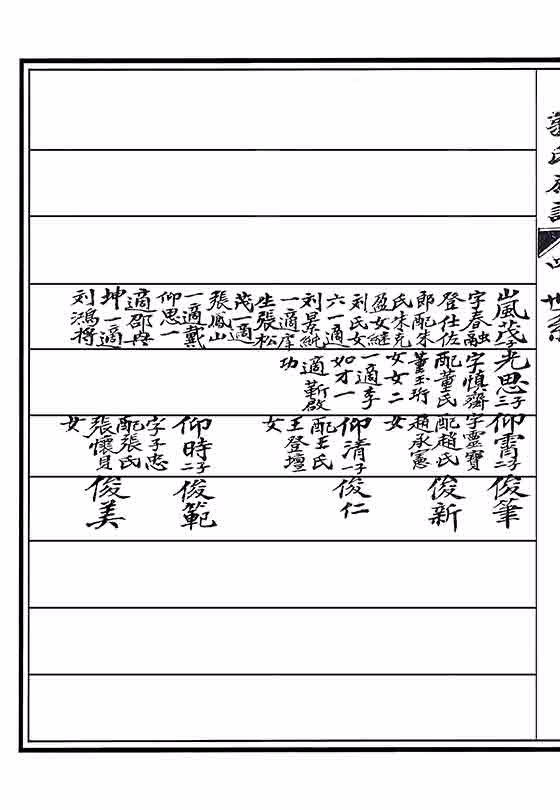 四世系
嵐茂子
字春融
登仕佐
郎配朱
氏朱充
盈女繼
刘氏女
六一適
刘景純
一適庠
生張松
茂一適
張鳳山
一適戴
仰思一
適邵
坤一適
刘鴻將
光思三子
字慎齋
配董氏
董玉珩
女女二
一適李
如才一
適靳啟
功
仰霄二子
字靈寶
配趙氏
趙承憲
女
仰清一子
配王氏
王登壇
女
仰時二子
字子忠
配張氏
張懷見
女
俊筆
俊新
俊仁
俊範
俊美